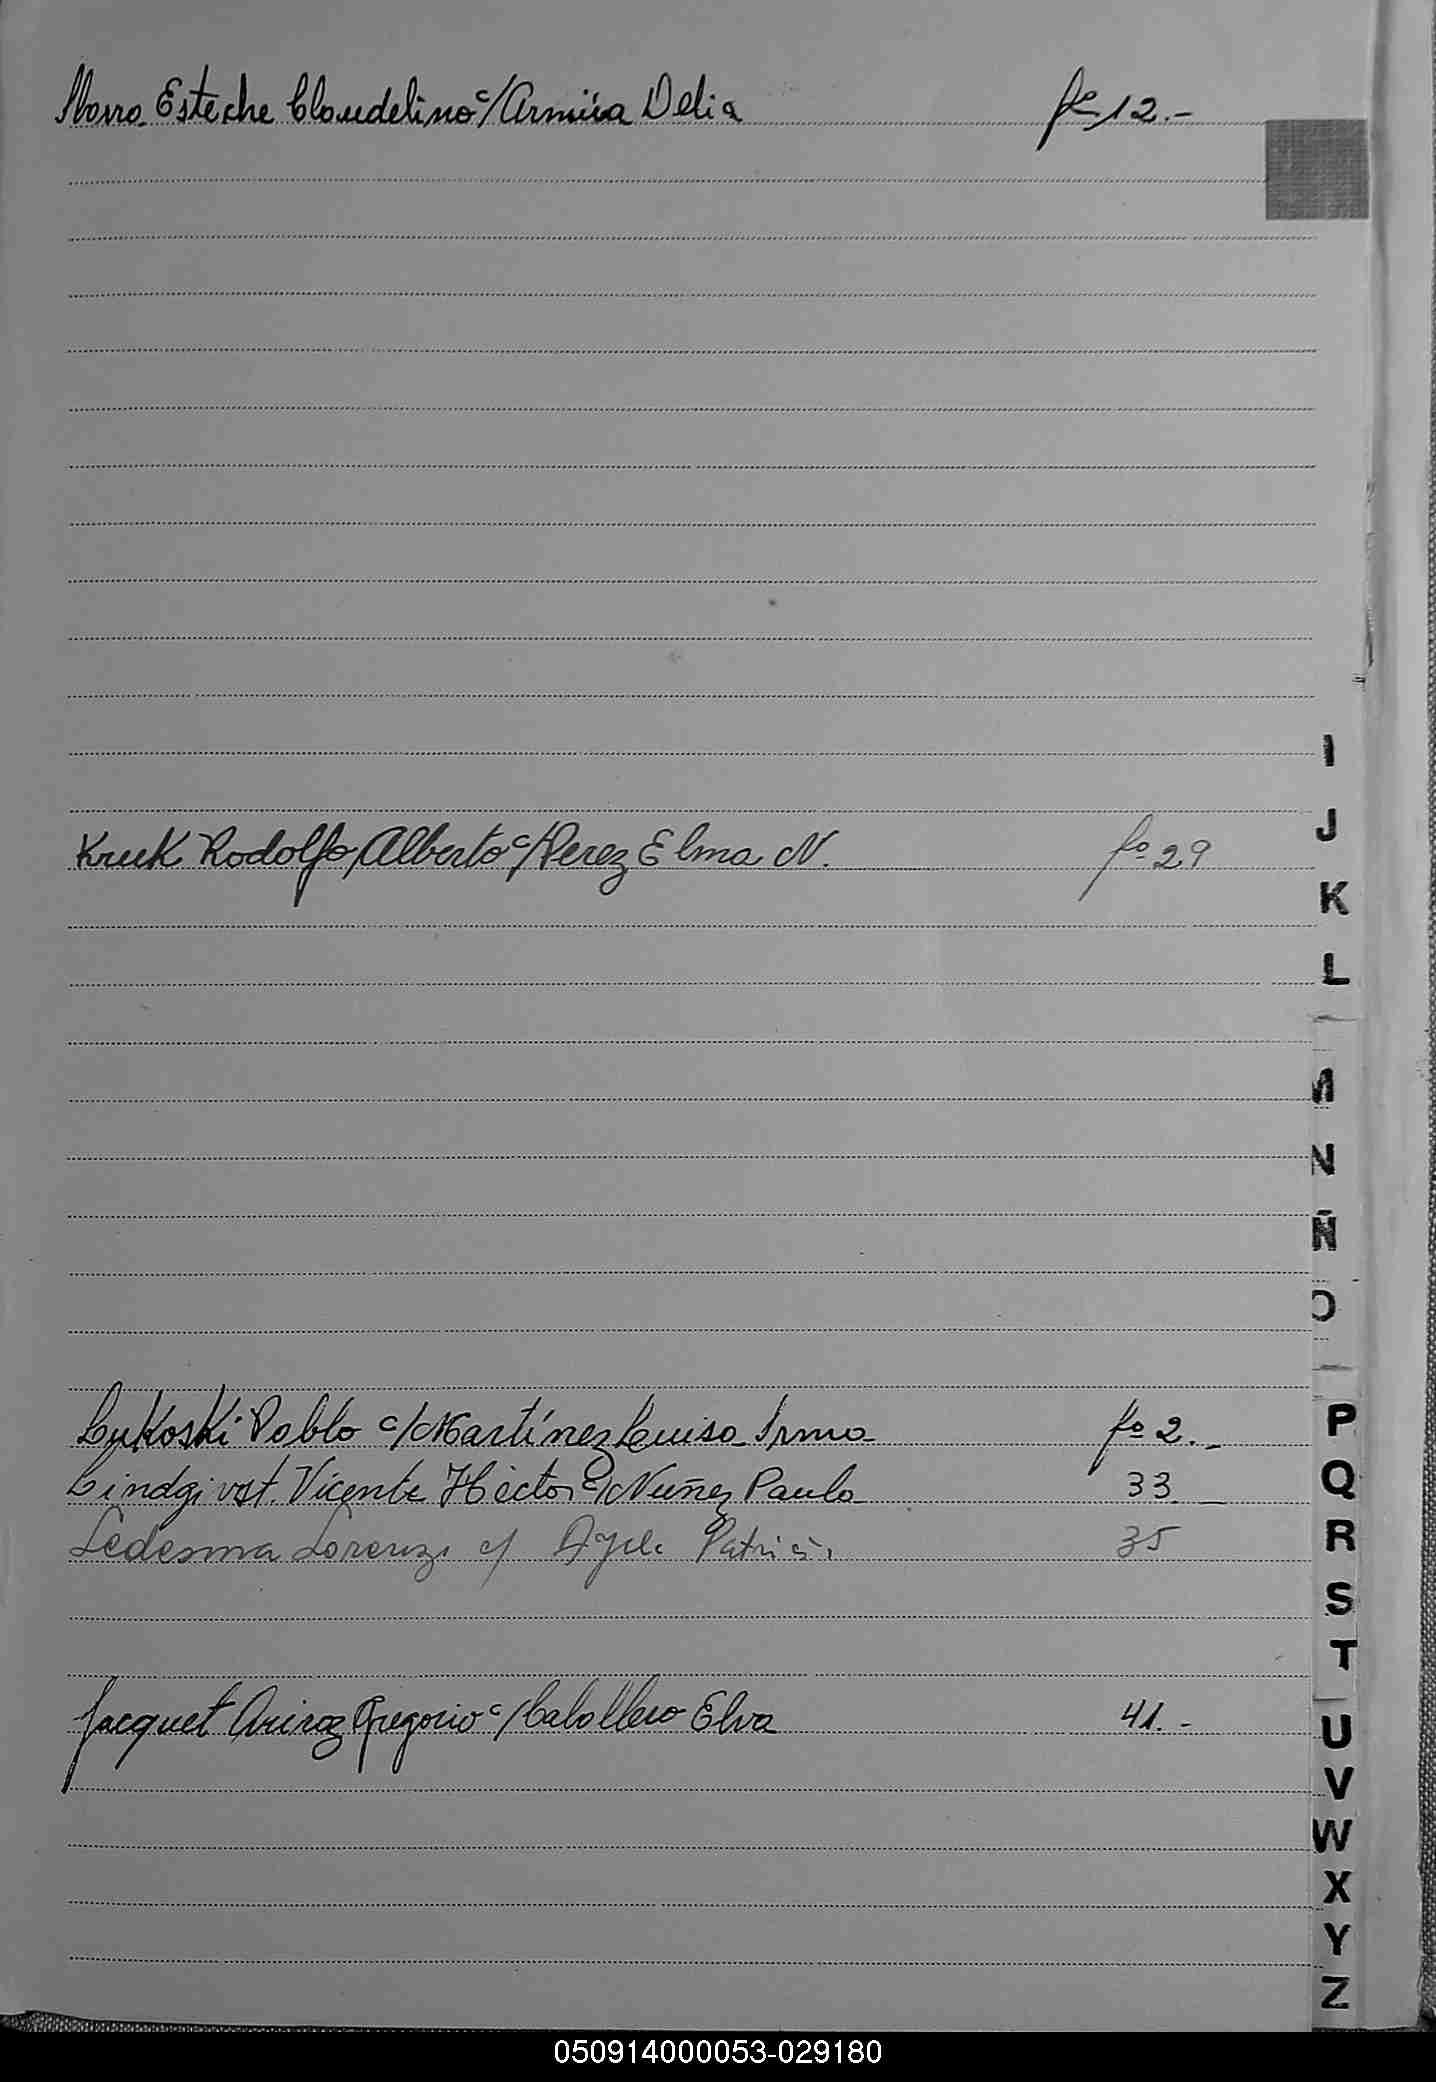 Esteche Claudelino c/ Armúa Delia fº 12.-
I
J
Kruk Rodolfo Alberto c/ Perez Elma N. fº 29
K
L
M
N
Ñ
O
Lukoski Pablo c/ Martínez Luisa Irma fº 2.-
P
Vicente Héctor c/ Nuñez Paula 33.-
Q
Ledesma Lorenzo c/ Patricia 35
R
S
T
Jacquet Gregorio c/ Caballero Elva 41.-
U
V
W
X
Y
Z
050914000053-029180